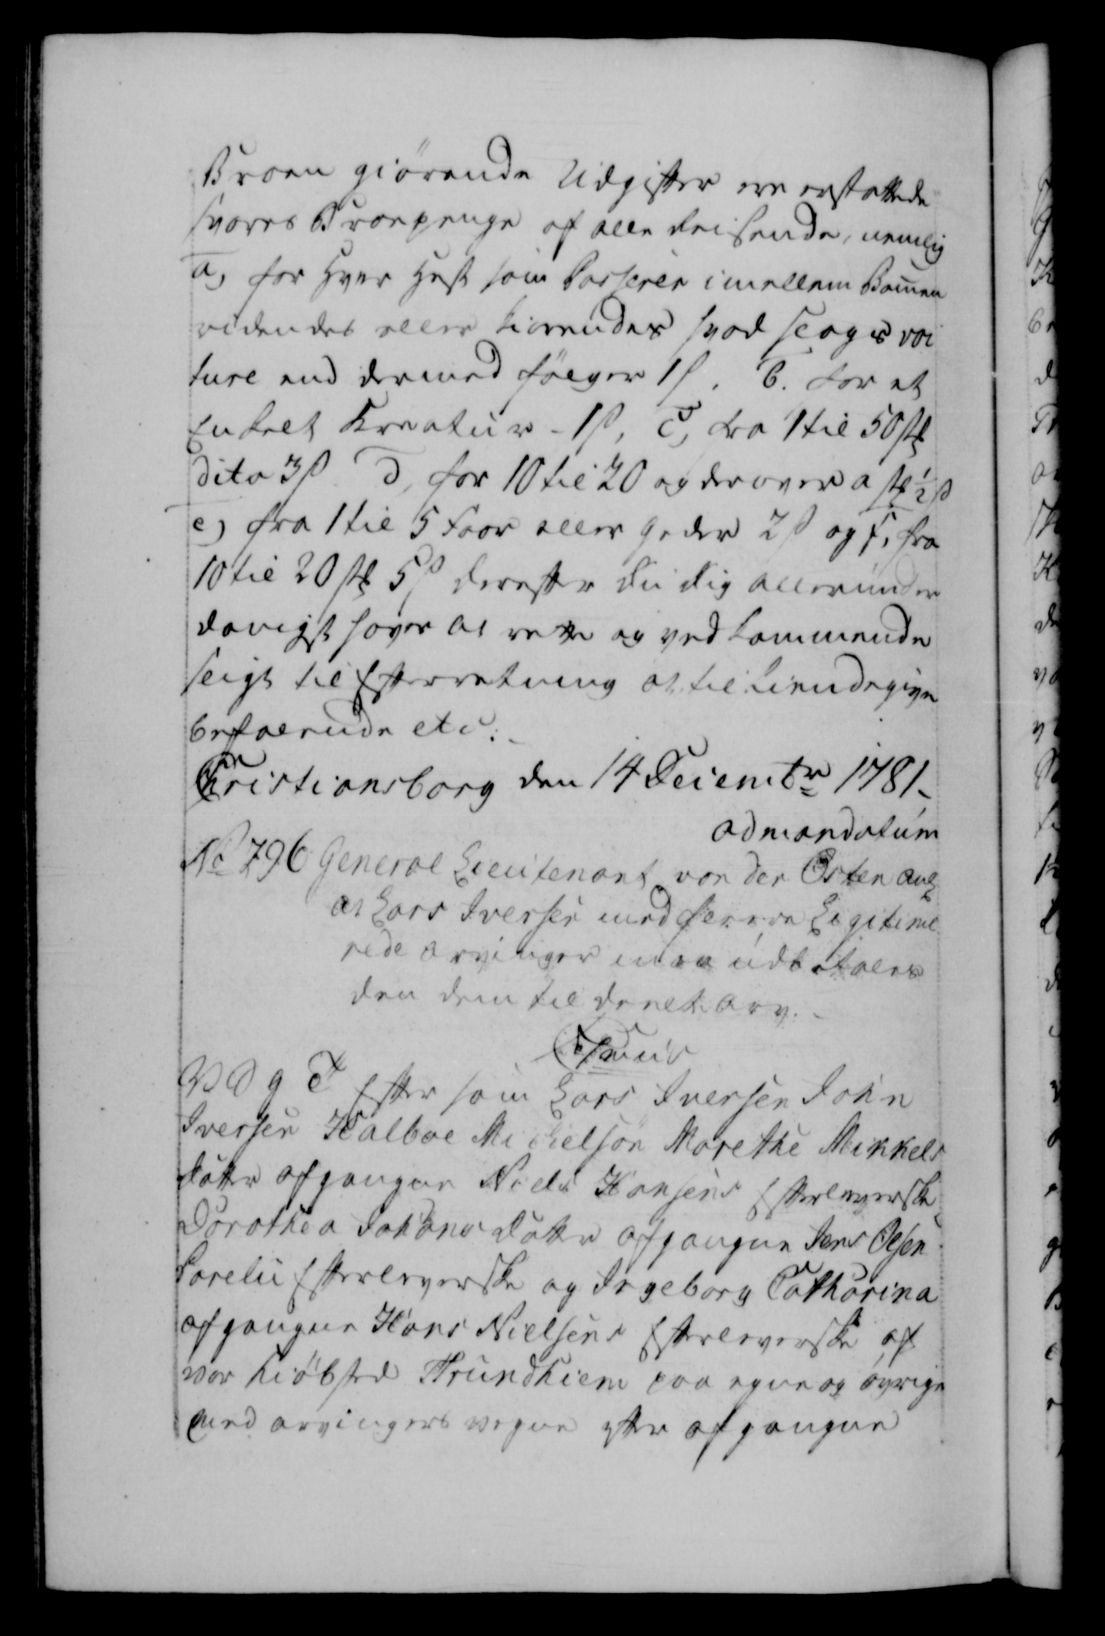 Broen giørende Udgifter ere erstattede
svares Broepenge af alle Reisende, nemlig
a, for hver Hest som Passerer imellem Bommen
ridendes eller kiørendes hvad slags voi
ture end dermed følger 1 ß. b. for et
Enkelt Kreatur - 1 ß, c, fra 1 til 50 st
dito 3 ß d, for 10 til 20 og derover a st ½ ß
e, fra 1 til 5 Faar eller Geder 2 ß og f, fra
10 til 20 st 5 ß derefter du dig allerunder
danigst haver at rette og vedkommende
sligt til Efterretning at tilkiendegive
befalende etc.
Christiansborg den 14 Decembr 1781.
ad mandatum
No 796 General Lieutenant von der Osten ang
at Lars Iversen med fleere Legitime
rede arvinger maa udbetales
den dem til deelte arv.
C 7mus
V S g T Efter som Lars Iversen John
Iversen Kalboe Mikkelsøn Marethe Mikkels
datter afgangne Niels Hansens Efterleverske
Dorothea Johans datter afgangne Jens Olsen
Efterleverske og Ingeborg Catharina
afgangne Hans Nielsens Efterleverske af
vor Kiøbsted Trundhiem paa egne og øvrige
med arvingers vegne efter afgangne